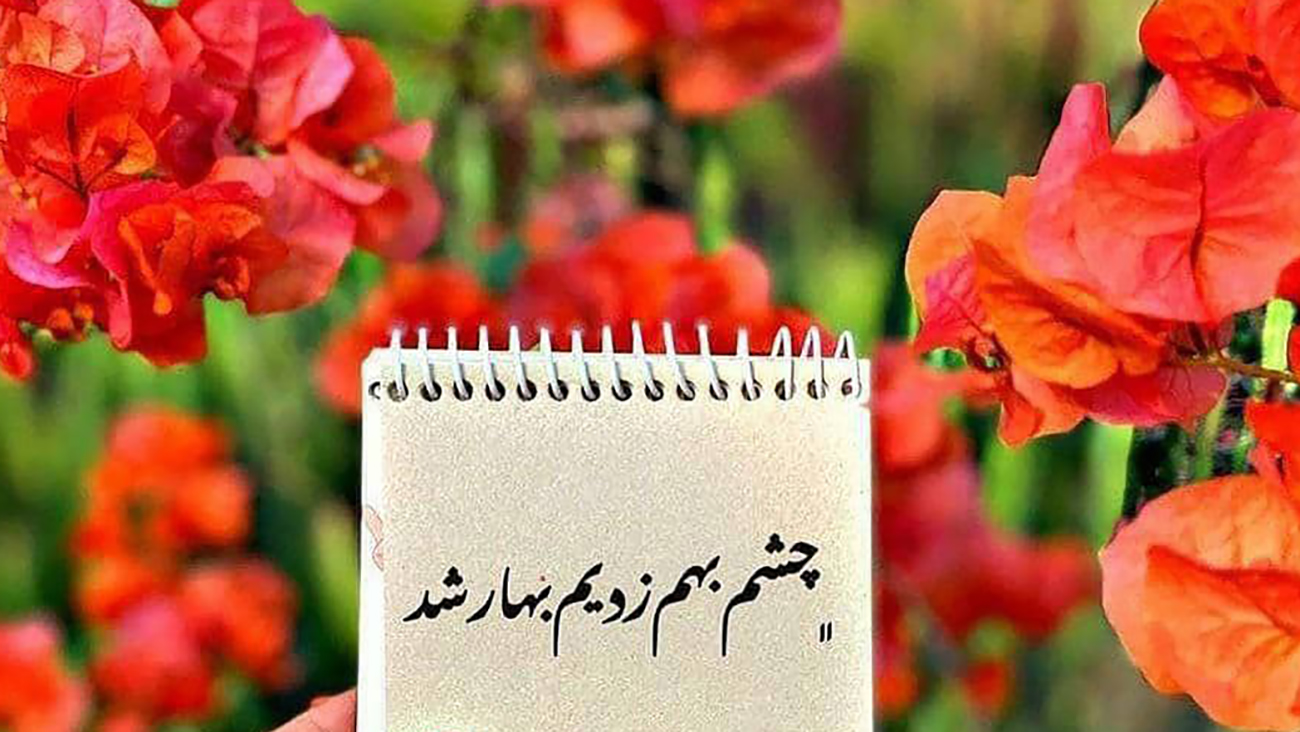 چشم بهم زدیم بهار شد
"